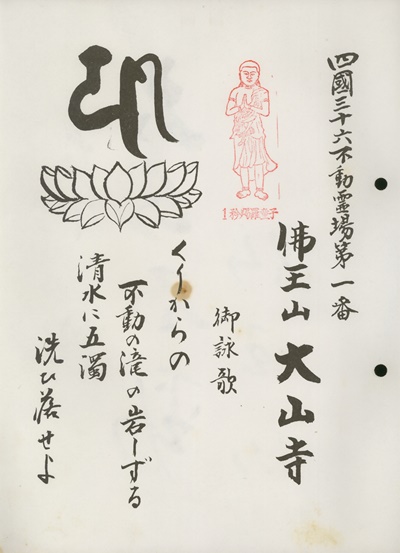 四國三十六不動霊場第一番
佛王山 大山寺
1矜羯羅童子
御詠歌
くりからの
不動の滝の岩しずる
清水に五濁
洗ひ落せよ